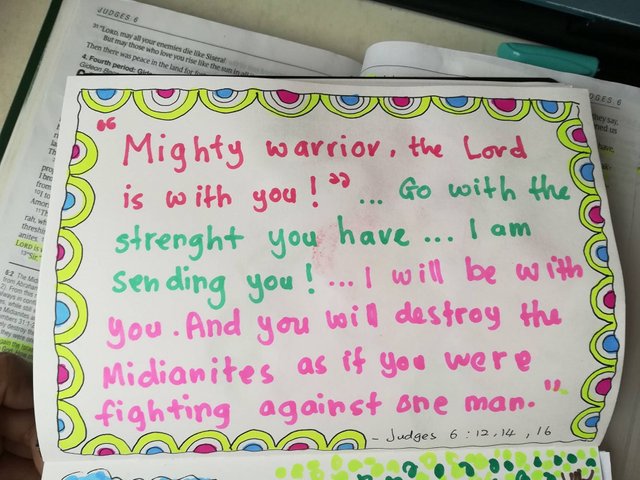 JUDGES 6
31 "LORD, may all your enemies die like Sisera!
But may those who love you rise like the sun in all
Then there was peace in the land for
4. Fourth period:
Gideon
"Mighty warrior, the Lord
is with you!" ... Go with the
strenght you have ... I am
sending you! ... I will be with
you. And you will destroy the
Midianites as if you were
fighting against one man."
- Judges 6:12,14,16
6:2 The
from
2). From this